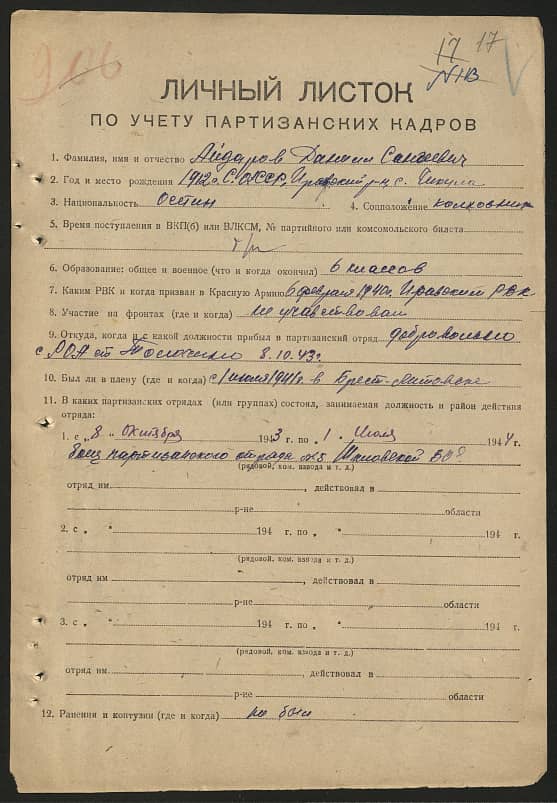 906
17 17
ЛИЧНЫЙ ЛИСТОК
ПО УЧЕТУ ПАРТИЗАНСКИХ КАДРОВ
1. Фамилия, имя и отчество Айдаров Данил
2. Год и место рождения 1912 г. С.О.АССР, Ирафский р-н, с. Чикула
3. Национальность Осетин 4. Соцположение колхозник
5. Время поступления в ВКП(б) или ВЛКСМ, № партийного или комсомольского билета
б/п
6. Образование: общее и военное (что и когда окончил) 6 классов
7. Каким РВК и когда призван в Красную Армию 6 февраля 1940 г. Ирафским РВК
8. Участие на фронтах (где и когда) не участвовал
9. Откуда, когда и с какой должности прибыл в партизанский отряд добровольно
с РОА от Толочино 8.10.43 г.
10. Был ли в плену (где и когда) с 1 июля 1941 г. в Брест-Литовске
11. В каких партизанских отрядах (или группах) состоял, занимаемая должность и район действия
отряда:
1. с „ 8 „ Октября 1943 г. по „ 1 „ Июля 1944 г.
боец партизанского отряда №5 Шкловской
(рядовой, ком. взвода и т. д.)
отряд им , действовал в
р-не области
2. с „ " 194 г. по „ " 194 г.
(рядовой, ком. взвода и т. д.)
отряд им , действовал в
р-не области
3. с „ " 194 г. по „ " 194 г.
(рядовой, ком. взвода и т. д.)
отряд им , действовал в
р-не области
12. Ранения и контузии (где и когда) не был